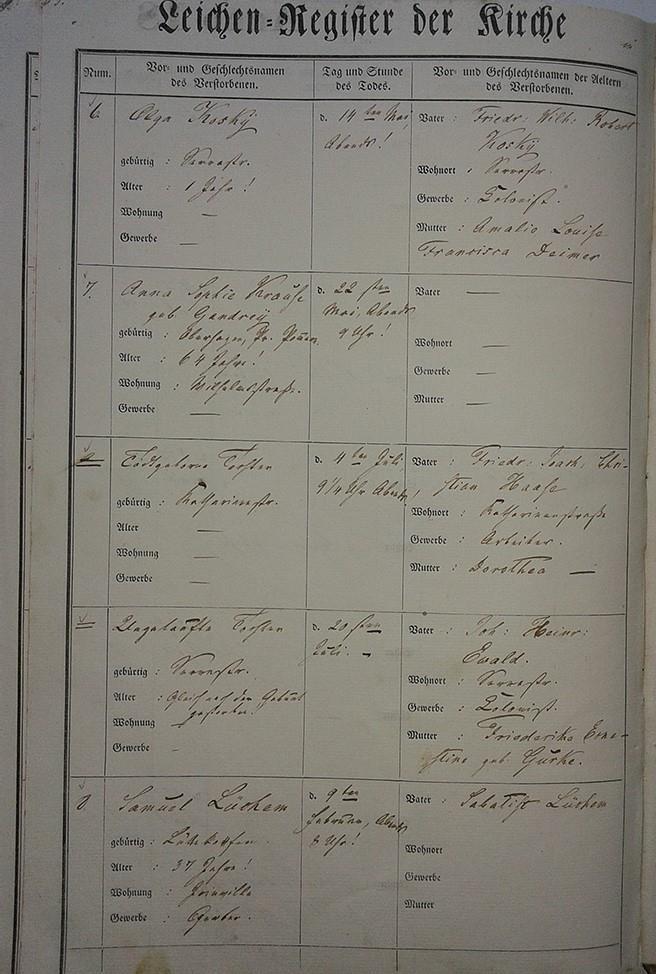 Leichen-Register der Kirche
Num.
Vor- und Geschlechtsnamen
des Verstorbenen.
Tag und Stunde
des Todes.
Vor- und Geschlechtsnamen der Aeltern
des Verstorbenen.
6.
Olga Kosky
gebürtig : Serrastr.
Alter : 1 Jahr!
Wohnung —
Gewerbe : —
d. 14 ten Mai,
Abends!
Vater : Friedr: Wilh: Robert
Kosky
Wohnort : Serrastr.
Gewerbe : Colonist.
Mutter : Amalie Louise
Francisca Deimer
7.
Anna Sophie Krause
geb. Gandrey
gebürtig : Pr. Pommern
Alter : 64 Jahre!
Wohnung : Wilhelmstraße.
Gewerbe —
d. 22 sten
Mai, Abends
9 Uhr!
Vater —
Wohnort —
Gewerbe —
Mutter —
Todtgeborne Tochter
gebürtig : Katharinenstr.
Alter —
Wohnung —
Gewerbe : —
d. 4 ten Juli
9 1/4 Uhr Abends,
Vater : Friedr: Joach: Chri-
stian Haase
Wohnort : Katharinenstraße
Gewerbe : Arbeiter.
Mutter : Dorothea —
Ungetaufte Tochter
gebürtig : Serrastr.
Alter : Gleich nach der Geburt
gestorben.
Wohnung
Gewerbe : -
d. 20 sten
Juli. -
Vater : Joh: Heinr:
Ewald.
Wohnort : Serrastr.
Gewerbe : Colonist.
Mutter : Friederike Erne-
stine geb. Gürke.
8.
Samuel Lüchem
gebürtig :
Alter : 37 Jahre!
Wohnung : Joinville
Gewerbe : Gerber.
d. 9 ten
Februar, Abends
8 Uhr!
Vater : Lüchem
Wohnort
Gewerbe
Mutter